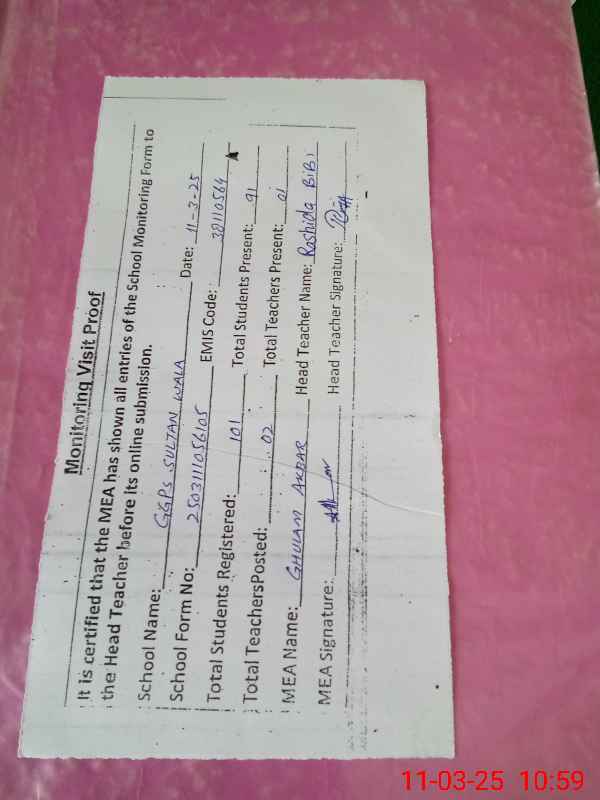 Monitoring Visit Proof
It is certified that the MEA has shown all entries of the School Monitoring Form to
the Head Teacher before its online submission.
School Name: GGPS SULTAN WALA Date: 11-3-25
School Form No: 2503111056105 EMIS Code: 38110564
Total Students Registered: 101 Total Students Present: 91
Total TeachersPosted: 02 Total Teachers Present: 01
MEA Name: GHULAM AKBAR Head Teacher Name: Rashida BiBi
MEA Signature: Head Teacher Signature:
11-03-25 10:59